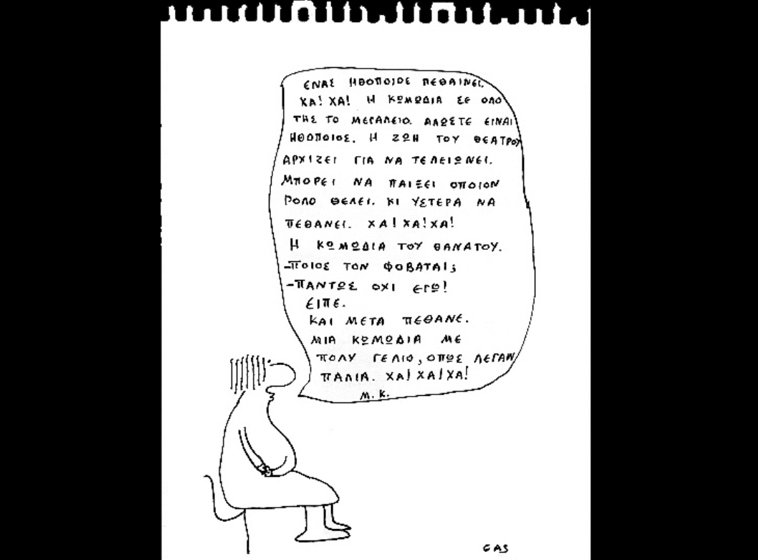 ΕΝΑΣ ΗΘΟΠΟΙΟΣ ΠΕΘΑΙΝΕΙ.
ΧΑ! ΧΑ! Η ΚΩΜΩΔΙΑ ΣΕ ΟΛΟ
ΤΗΣ ΤΟ ΜΕΓΑΛΕΙΟ. ΑΛΩΣΤΕ ΕΙΝΑΙ
ΗΘΟΠΟΙΟΣ. Η ΖΩΗ ΤΟΥ ΘΕΑΤΡΟΥ
ΑΡΧΙΖΕΙ ΓΙΑ ΝΑ ΤΕΛΕΙΩΝΕΙ.
ΜΠΟΡΕΙ ΝΑ ΠΑΙΞΕΙ ΟΠΟΙΟΝ
ΡΟΛΟ ΘΕΛΕΙ. ΚΙ ΥΣΤΕΡΑ ΝΑ
ΠΕΘΑΝΕΙ. ΧΑ! ΧΑ! ΧΑ!
Η ΚΩΜΩΔΙΑ ΤΟΥ ΘΑΝΑΤΟΥ.
-ΠΟΙΟΣ ΤΟΝ ΦΟΒΑΤΑΙ;
-ΠΑΝΤΩΣ ΟΧΙ ΕΓΩ!
ΕΙΠΕ.
ΚΑΙ ΜΕΤΑ ΠΕΘΑΝΕ.
ΜΙΑ ΚΩΜΩΔΙΑ ΜΕ
ΠΟΛΥ ΓΕΛΙΟ, ΟΠΩΣ ΛΕΓΑΝ
ΠΑΛΙΑ. ΧΑ! ΧΑ! ΧΑ!
Μ.Κ.
GAS